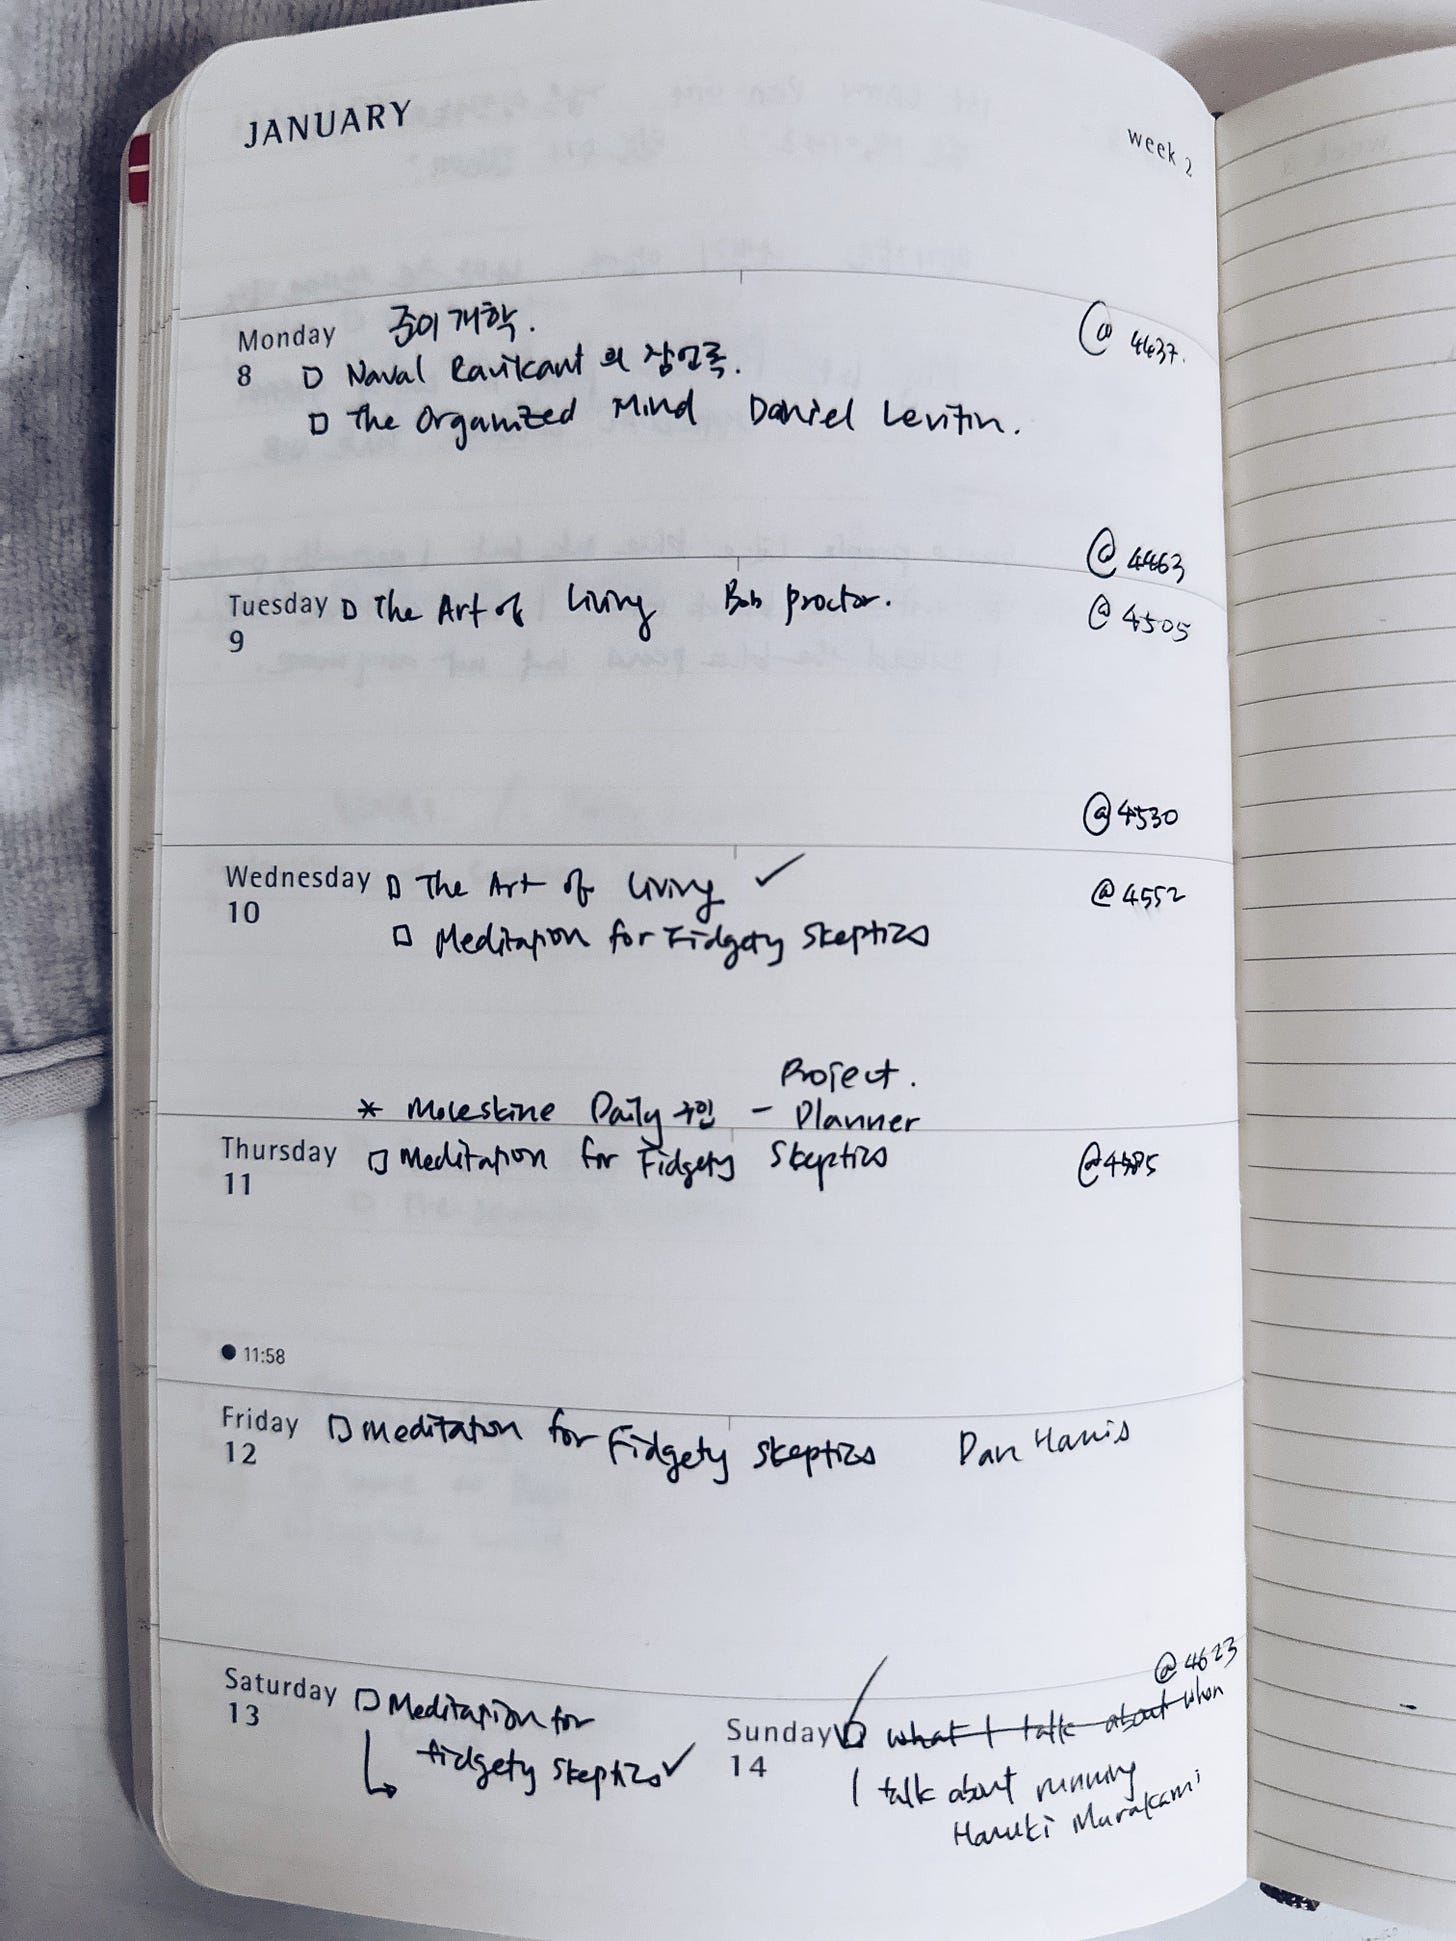 JANUARY
week 2
Monday 중이 개학.
@ 4437.
8 □ Naval Ravikant의 잠언록.
□ The Organized Mind Daniel Levitin.
@ 4463
Tuesday □ The Art of Living Bob Proctor.
@ 4505
9
@ 4530
Wednesday □ The Art of Living ✓
@ 4552
10 □ Meditation for Fidgety Skeptics
Project.
* Moleskine Daily 구입 - Planner
Thursday □ Meditation for Fidgety Skeptics
@4585
11
● 11:58
Friday □ Meditation for Fidgety Skeptics Dan Harris
12
@ 4623
Saturday □ Meditation for
13 fidgety skeptics ✓
Sunday □ what I talk about when
14 I talk about running
Haruki Murakami